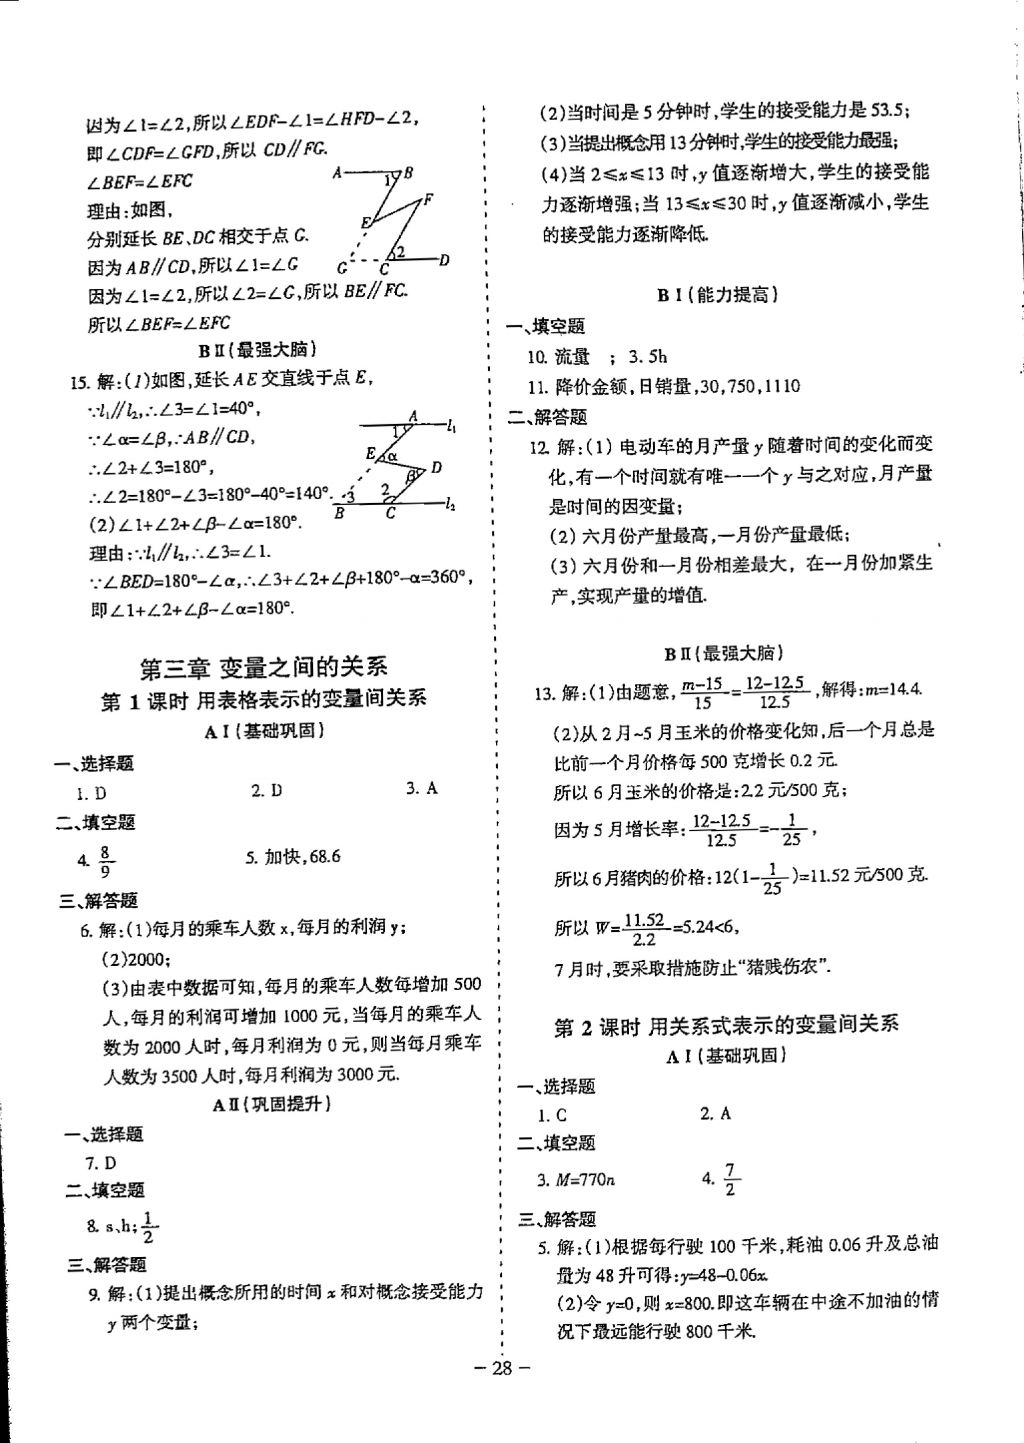 因为∠1=∠2,所以∠EDF-∠1=∠HFD-∠2,
即∠CDF=∠GFD,所以 CD∥FG.
∠BEF=∠EFC
理由:如图,
分别延长 BE、DC 相交于点 G.
因为 AB∥CD,所以∠1=∠G
因为∠1=∠2,所以∠2=∠G,所以 BE∥FC.
所以∠BEF=∠EFC
A
1
B
F
E
G
C
2
D
BⅡ(最强大脑)
15. 解:(1)如图,延长 AE 交直线于点 E,
∵l₁∥l₂,∴∠3=∠1=40°,
∵∠α=∠β,∴AB∥CD,
∴∠2+∠3=180°,
∴∠2=180°-∠3=180°-40°=140°.
(2)∠1+∠2+∠β-∠α=180°.
理由:∵l₁∥l₂,∴∠3=∠1.
∵∠BED=180°-∠α,∴∠3+∠2+∠β+180°-α=360°,
即∠1+∠2+∠β-∠α=180°.
A
1
l₁
E
α
D
β
3
2
B
C
l₂
第三章 变量之间的关系
第 1 课时 用表格表示的变量间关系
AⅠ(基础巩固)
一、选择题
1. D 2. D 3. A
二、填空题
4. 8/9 5. 加快,68.6
三、解答题
6. 解:(1)每月的乘车人数 x,每月的利润 y;
(2)2000;
(3)由表中数据可知,每月的乘车人数每增加 500
人,每月的利润可增加 1000 元,当每月的乘车人
数为 2000 人时,每月利润为 0 元,则当每月乘车
人数为 3500 人时,每月利润为 3000 元.
AⅡ(巩固提升)
一、选择题
7. D
二、填空题
8. s、h;1/2
三、解答题
9. 解:(1)提出概念所用的时间 x 和对概念接受能力
y 两个变量;
(2)当时间是 5 分钟时,学生的接受能力是 53.5;
(3)当提出概念用 13 分钟时,学生的接受能力最强;
(4)当 2≤x≤13 时,y 值逐渐增大,学生的接受能
力逐渐增强;当 13≤x≤30 时,y 值逐渐减小,学生
的接受能力逐渐降低.
BⅠ(能力提高)
一、填空题
10. 流量 ; 3. 5h
11. 降价金额,日销量,30,750,1110
二、解答题
12. 解:(1) 电动车的月产量 y 随着时间的变化而变
化,有一个时间就有唯一一个 y 与之对应,月产量
是时间的因变量;
(2) 六月份产量最高,一月份产量最低;
(3) 六月份和一月份相差最大，在一月份加紧生
产,实现产量的增值.
BⅡ(最强大脑)
13. 解:(1)由题意,m-15/15=12-12.5/12.5,解得:m=14.4.
(2)从 2 月~5 月玉米的价格变化知,后一个月总是
比前一个月价格每 500 克增长 0.2 元.
所以 6 月玉米的价格是:2.2 元/500 克;
因为 5 月增长率:12-12.5/12.5=-1/25,
所以 6 月猪肉的价格:12(1-1/25)=11.52 元/500 克.
所以 W=11.52/2.2=5.24<6,
7 月时,要采取措施防止“猪贱伤农”.
第 2 课时 用关系式表示的变量间关系
AⅠ(基础巩固)
一、选择题
1. C 2. A
二、填空题
3. M=770n 4. 7/2
三、解答题
5. 解:(1)根据每行驶 100 千米,耗油 0.06 升及总油
量为 48 升可得:y=48-0.06x.
(2)令 y=0,则 x=800.即这车辆在中途不加油的情
况下最远能行驶 800 千米.
- 28 -